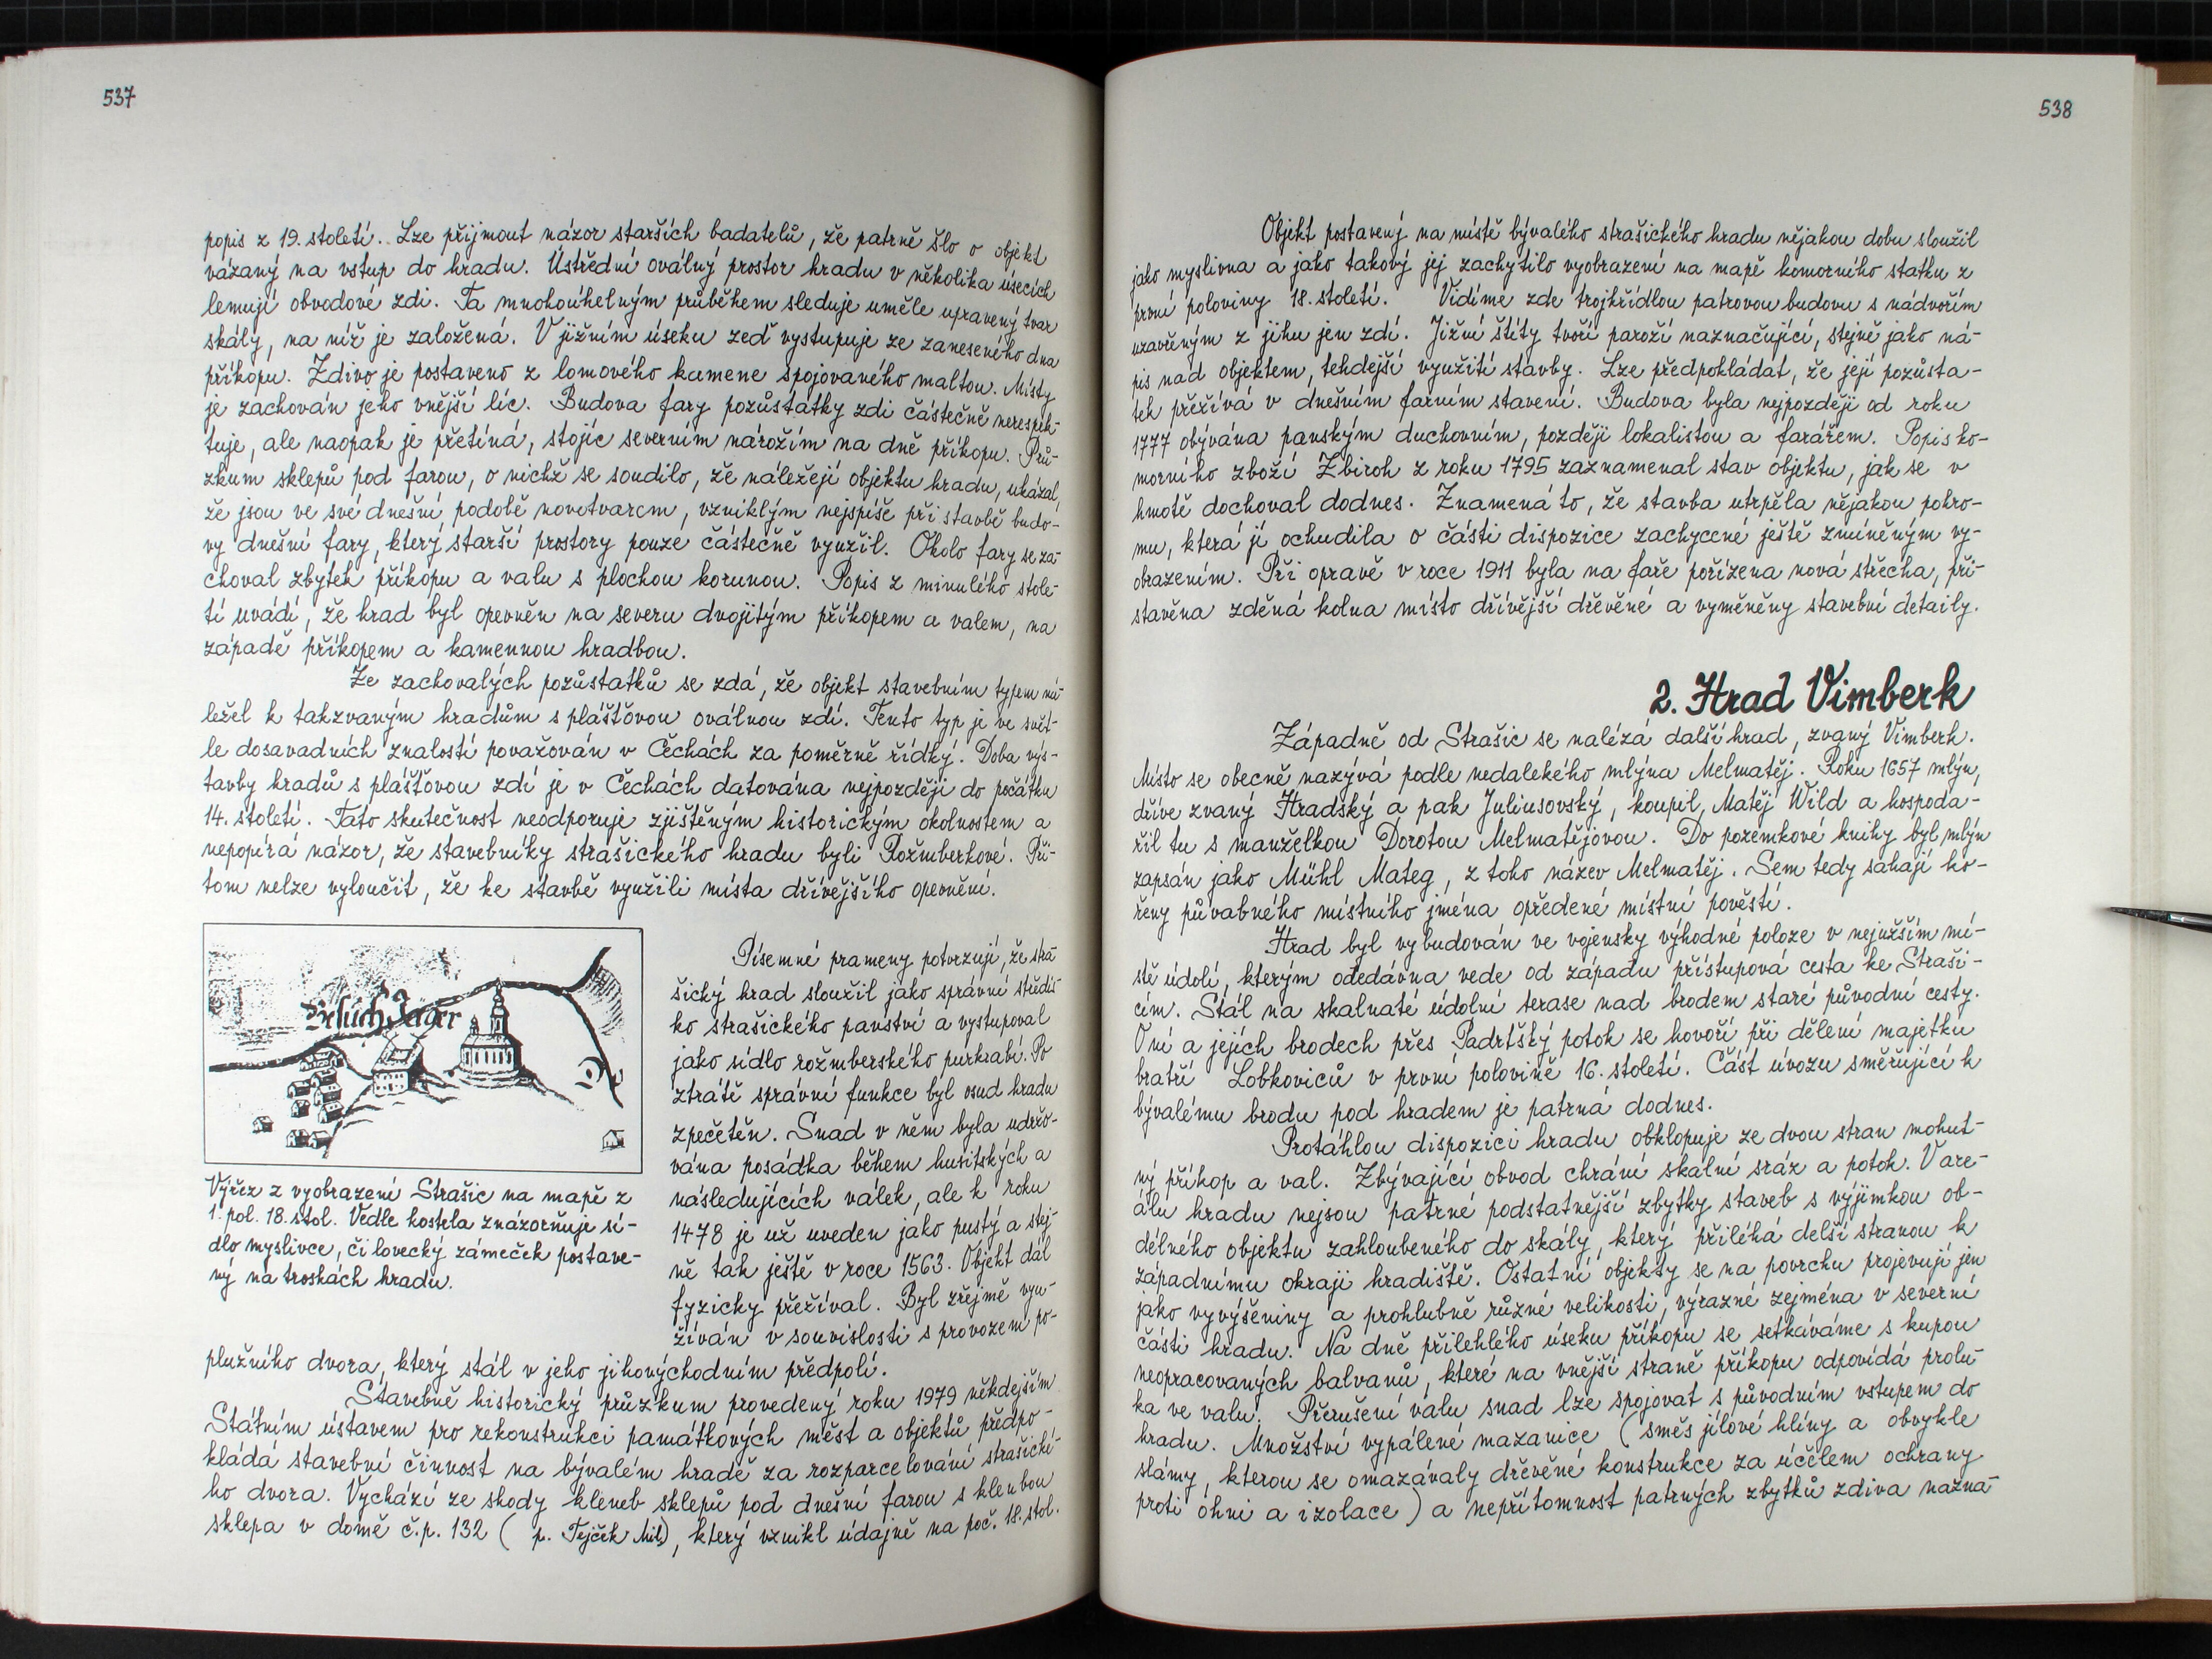 537
popis z 19. století. Lze přijmout názor starších badatelů, že patrně šlo o objekt
vázaný na vstup do hradu. Ústřední oválný prostor hradu v několika úsecích
lemují obvodové zdi. Ta mnohoúhelným průběhem sleduje uměle upravený tvar
skály, na níž je založená. V jižním úseku zeď vystupuje ze zaneseného dna
příkopu. Zdivo je postaveno z lomového kamene spojovaného maltou. Místy
je zachován jeho vnější líc. Budova fary pozůstatky zdi částečně nerespek-
tuje, ale naopak je přetíná, stojíc severním nárožím na dně příkopu. Prů-
zkum sklepů pod farou, o nichž se soudilo, že náležejí objektu hradu, ukázal,
že jsou ve své dnešní podobě novotvarem, vzniklým nejspíše při stavbě budo-
vy dnešní fary, který starší prostory pouze částečně využil. Okolo fary se za-
choval zbytek příkopu a valu s plochou korunou. Popis z minulého stole-
tí uvádí, že hrad byl opevněn na severu dvojitým příkopem a valem, na
západě příkopem a kamennou hradbou.
Ze zachovalých pozůstatků se zdá, že objekt stavebním typem ná-
ležel k takzvaným hradům s plášťovou oválnou zdí. Tento typ je ve svět-
le dosavadních znalostí považován v Čechách za poměrně řídký. Doba výs-
tavby hradů s plášťovou zdí je v Čechách datována nejpozději do počátku
14. století. Tato skutečnost neodporuje zjištěným historickým okolnostem a
nepopírá názor, že stavebníky strašického hradu byli Rožmberkové. Při-
tom nelze vyloučit, že ke stavbě využili místa dřívějšího opevnění.
Jäger
Výřez z vyobrazení Strašic na mapě z
1. pol. 18. stol. Vedle kostela znázorňuje sí-
dlo myslivce, či lovecký zámeček postave-
ný na troskách hradu.
Písemné prameny potvrzují, že stra-
šický hrad sloužil jako správní středis-
ko strašického panství a vystupoval
jako sídlo rožmberského purkrabí. Po
ztrátě správní funkce byl osud hradu
zpečetěn. Snad v něm byla udržo-
vána posádka během husitských a
následujících válek, ale k roku
1478 je už uveden jako pustý a stej-
ně tak ještě v roce 1563. Objekt dál
fyzicky přežíval. Byl zřejmě vyu-
žíván v souvislosti s provozem po-
plužního dvora, který stál v jeho jihovýchodním předpolí.
Stavebně historický průzkum provedený roku 1979 někdejším
Státním ústavem pro rekonstrukci památkových měst a objektů předpo-
kládá stavební činnost na bývalém hradě za rozparcelování strašické-
ho dvora. Vychází ze shody kleneb sklepů pod dnešní farou s klenbou
sklepa v domě č.p. 132 ( p. Tejček Mil), který vznikl údajně na poč. 18. stol.
538
Objekt postavený na místě bývalého strašického hradu nějakou dobu sloužil
jako myslivna a jako takový jej zachytilo vyobrazení na mapě komorního statku z
první poloviny 18. století. Vidíme zde trojkřídlou patrovou budovu s nádvořím
uzavřeným z jihu jen zdí. Jižní štíty tvoří paroží naznačující, stejně jako ná-
pis nad objektem, tehdejší využití stavby. Lze předpokládat, že její pozůsta-
tek přežívá v dnešním farním stavení. Budova byla nejpozději od roku
1777 obývána panským duchovním, později lokalistou a farářem. Popis ko-
morního zboží Zbiroh z roku 1795 zaznamenal stav objektu, jak se v
hmotě dochoval dodnes. Znamená to, že stavba utrpěla nějakou pohro-
mu, která ji ochudila o části dispozice zachycené ještě zmíněným vy-
obrazením. Při opravě v roce 1911 byla na faře pořízena nová střecha, při-
stavěna zděná kolna místo dřívější dřevěné a vyměněny stavební detaily.
2. Hrad Vimberk
Západně od Strašic se nalézá další hrad, zvaný Vimberk.
Místo se obecně nazývá podle nedalekého mlýna Melmatěj. Roku 1657 mlýn,
dříve zvaný Hradský a pak Juliusovský, koupil Matěj Wild a hospoda-
řil tu s manželkou Dorotou Melmatějovou. Do pozemkové knihy byl mlýn
zapsán jako Mühl Mateg, z toho název Melmatěj. Sem tedy sahají ko-
řeny půvabného místního jména opředené místní pověstí.
Hrad byl vybudován ve vojensky výhodné poloze v nejužším mí-
stě údolí, kterým odedávna vede od západu přístupová cesta ke Straši-
cím. Stál na skalnaté údolní terase nad brodem staré původní cesty.
O ní a jejích brodech přes Padrťský potok se hovoří při dělení majetku
bratří Lobkoviců v první polovině 16. století. Část úvozu směřující k
bývalému brodu pod hradem je patrná dodnes.
Protáhlou dispozici hradu obklopuje ze dvou stran mohut-
ný příkop a val. Zbývající obvod chrání skalní sráz a potok. V are-
álu hradu nejsou patrné podstatnější zbytky staveb s výjimkou ob-
délného objektu zahloubeného do skály, který přiléhá delší stranou k
západnímu okraji hradiště. Ostatní objekty se na povrchu projevují jen
jako vyvýšeniny a prohlubně různé velikosti, výrazné zejména v severní
části hradu. Na dně přilehlého úseku příkopu se setkáváme s kupou
neopracovaných balvanů, které na vnější straně příkopu odpovídá prolu-
ka ve valu. Přerušení valu snad lze spojovat s původním vstupem do
hradu. Množství vypálené mazanice ( směs jílové hlíny a obvykle
slámy, kterou se omazávaly dřevěné konstrukce za účelem ochrany
proti ohni a izolace ) a nepřítomnost patrných zbytků zdiva nazna-